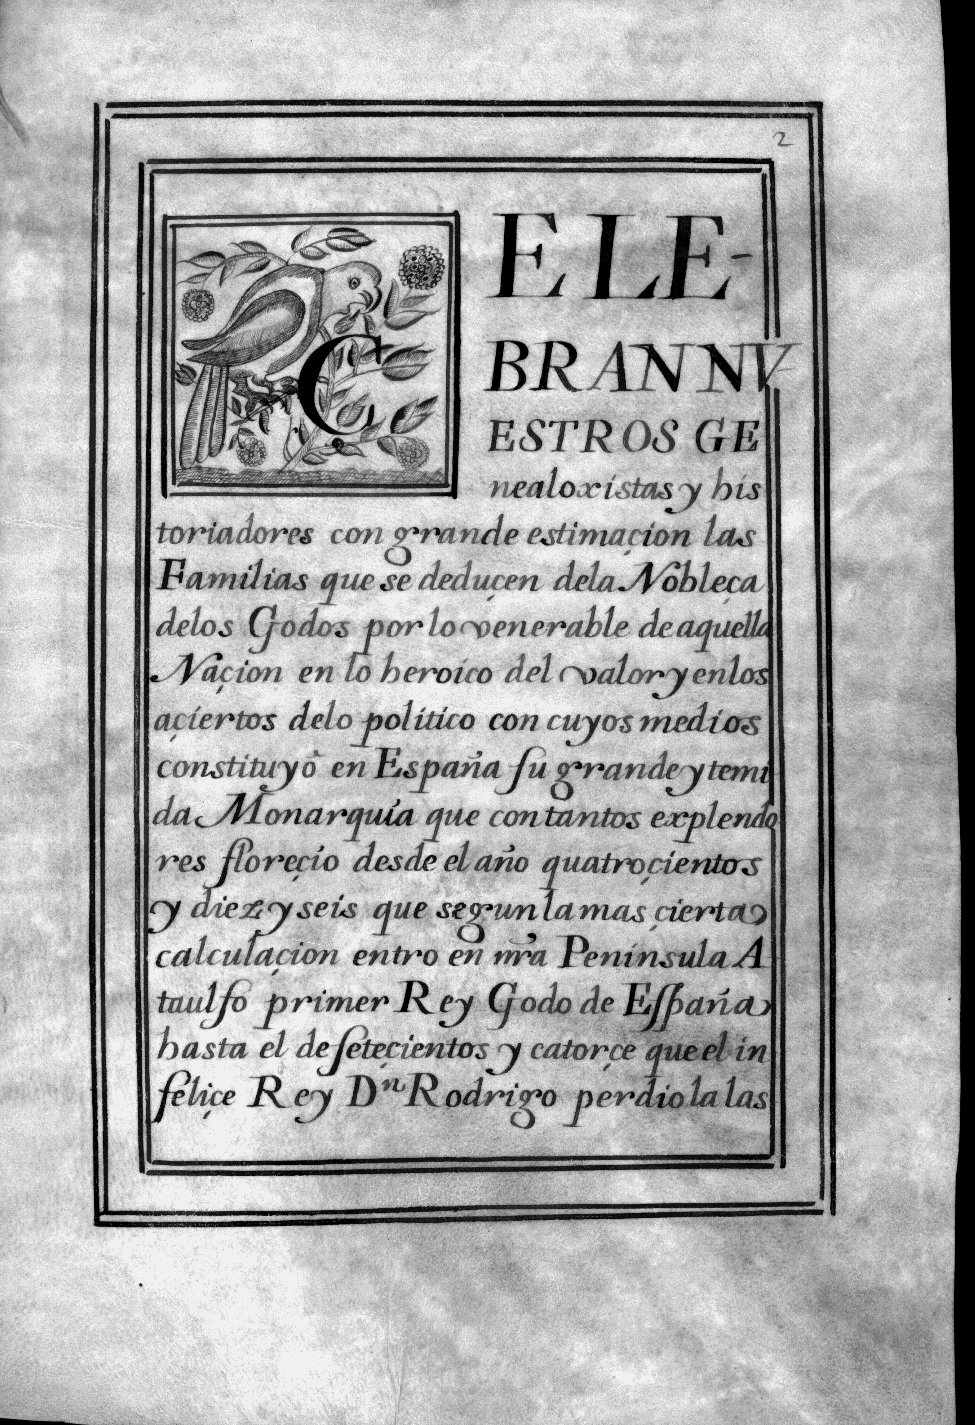 2
CELE-
BRAN NV
ESTROS GE
nealoxistas y his
toriadores con grande estimaçion las
Familias que se deduçen dela Nobleça
delos Godos por lo venerable de aquella
Naçion en lo heroico del valor y enlos
açiertos delo politico con cuyos medios
constituyò en España su grande y temi
da Monarquia que con tantos explendo
res floreçio desde el año quatroçientos
y diez y seis que segun la mas çierta
calculaçion entro en nr̃a Peninsula A
taulfo primer Rey Godo de España
hasta el de seteçientos y catorçe que el in
feliçe Rey Dⁿ Rodrigo perdio la las